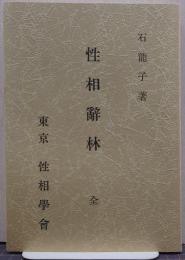 石龍子著
性相辭林
全
東京 性相學會